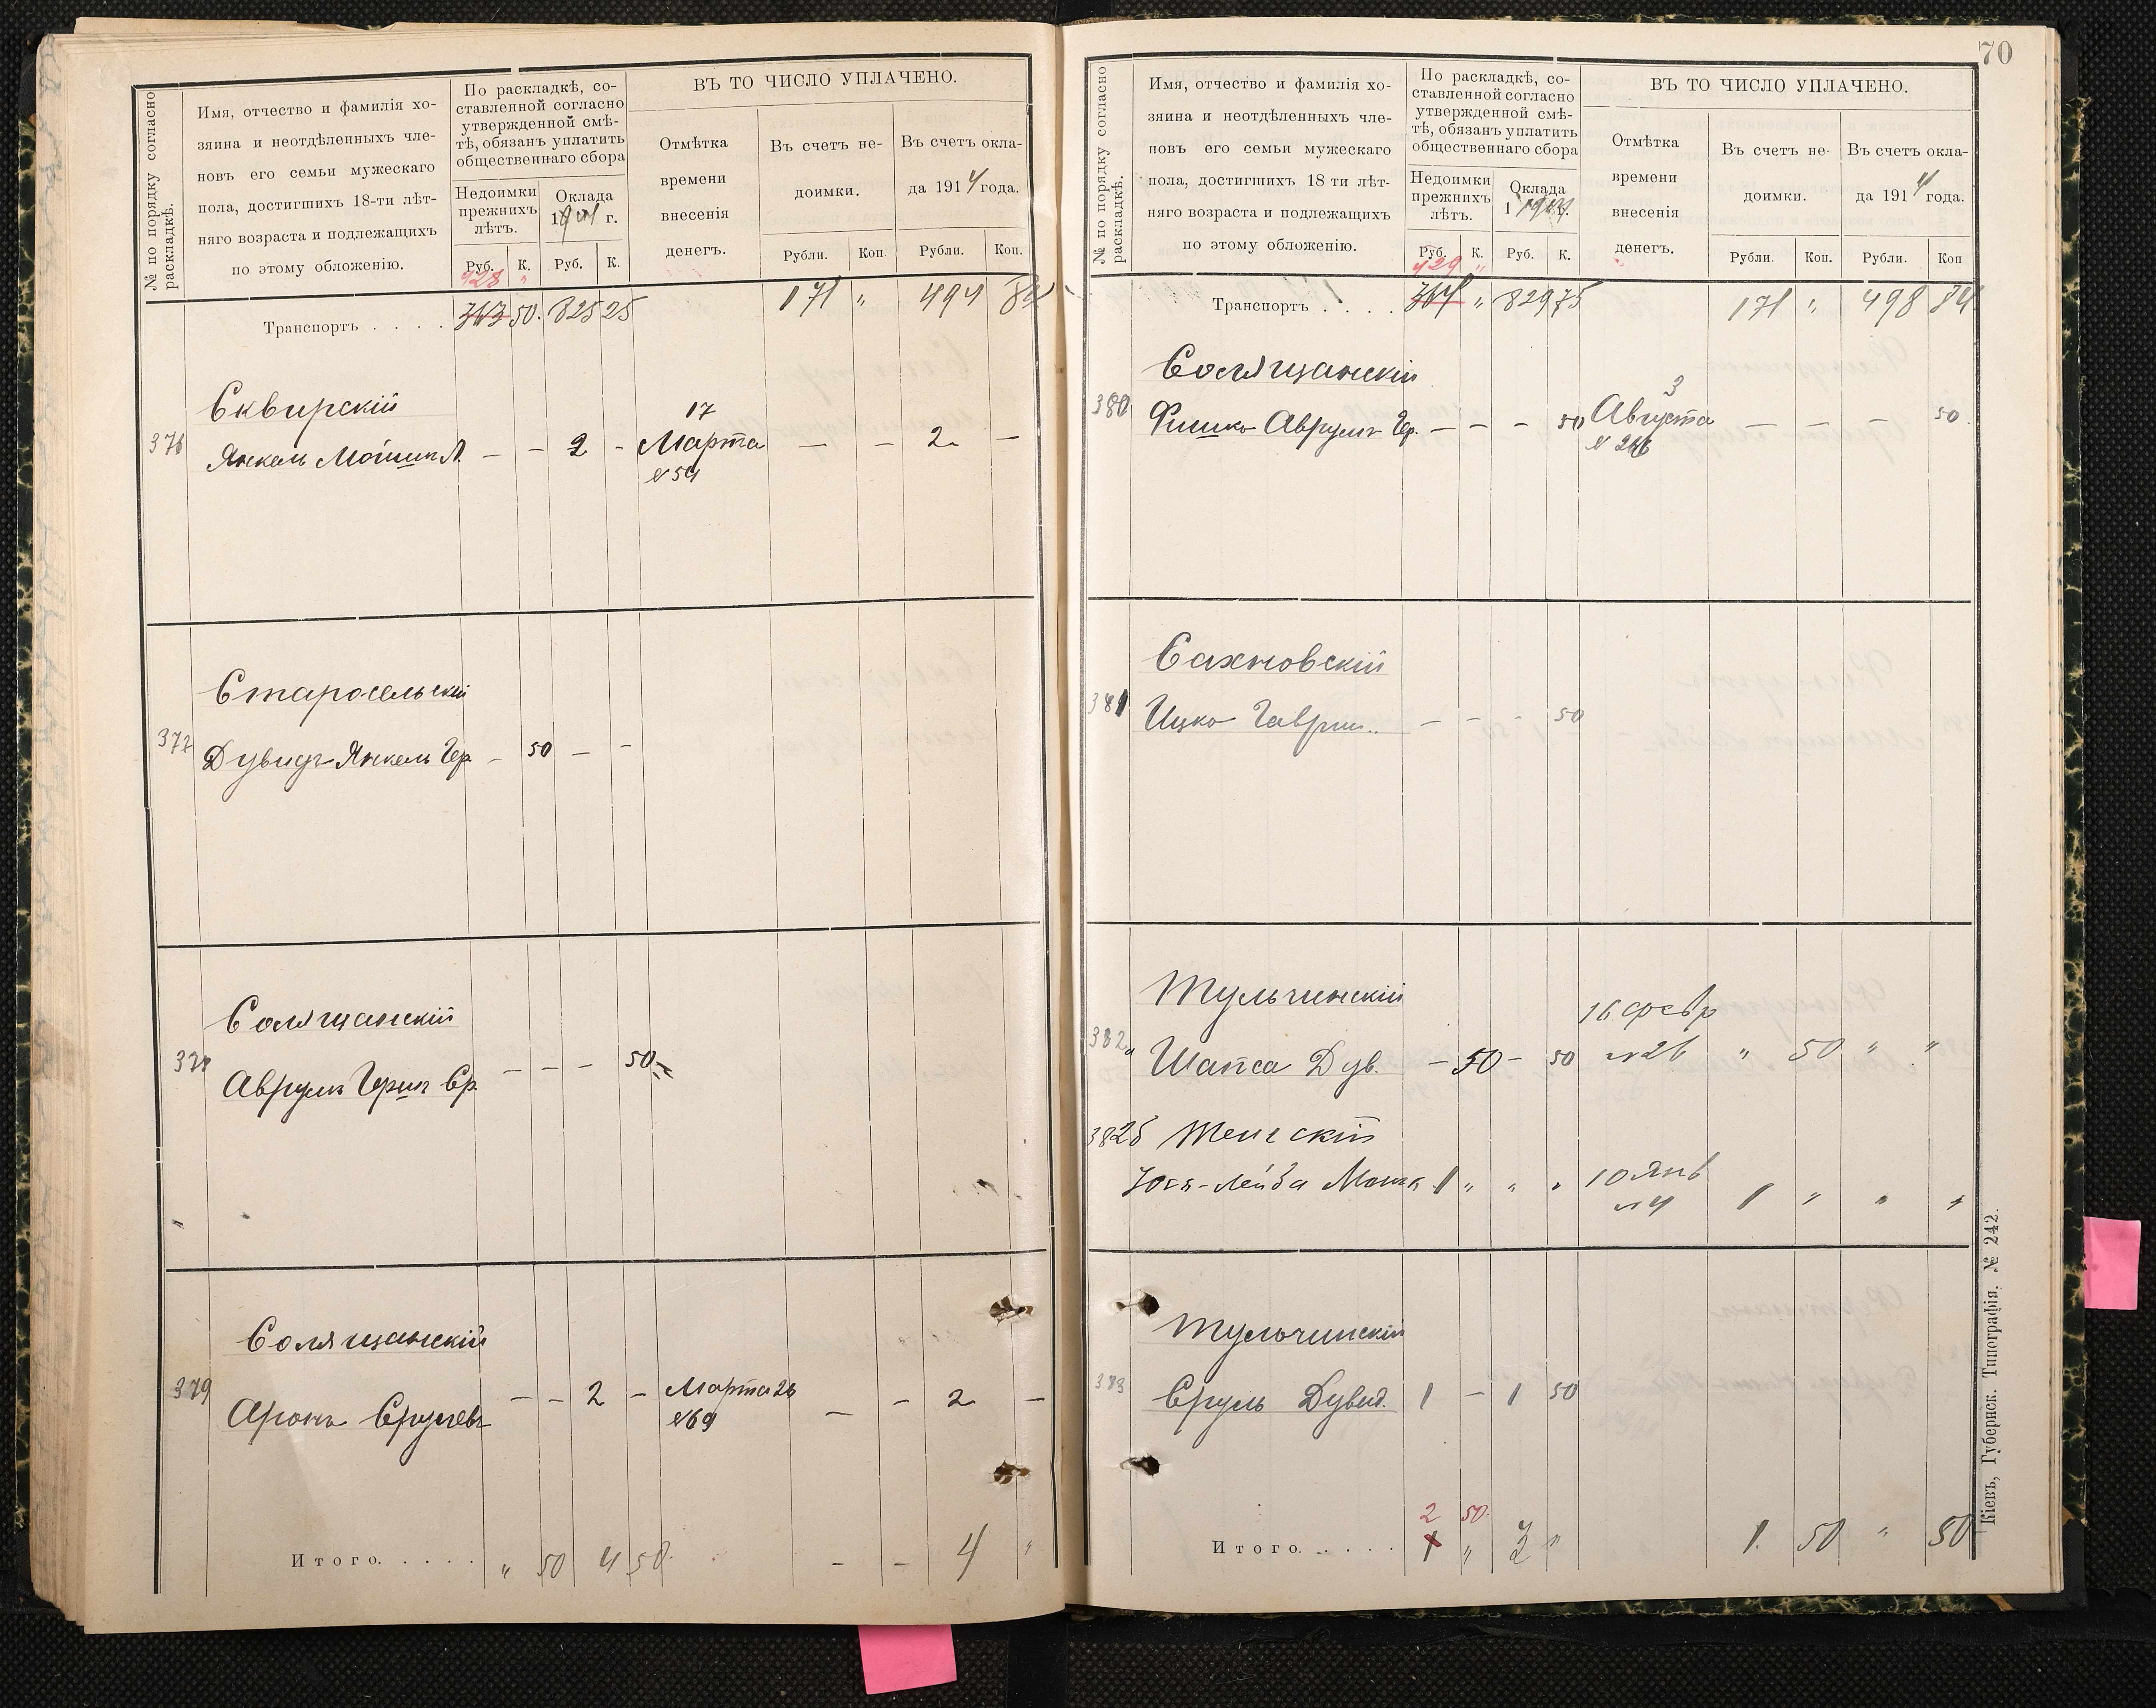 № по порядку согласно раскладкѣ.
Имя, отчество и фамилія хо-
зяина и неотдѣленныхъ чле-
новъ его семьи мужескаго
пола, достигшихъ 18-ти лѣт-
няго возраста и подлежащихъ
по этому обложенію.
По раскладкѣ, со-
ставленной согласно
утвержденной смѣ-
тѣ, обязанъ уплатить
общественнаго сбора
Недоимки
прежнихъ
лѣтъ.
Оклада
г.
Руб. К. Руб. К.
ВЪ ТО ЧИСЛО УПЛАЧЕНО.
Отмѣтка
времени
внесенія
денегъ.
Въ счетъ не-
доимки.
Въ счетъ окла-
да 1914 года.
Рубли. Коп. Рубли. Коп.
428 "
Транспортъ . . . . 363 50. 825 25 171 " 494 84
Сквирскій
376 Янкель Мошк Л. — — 2 - 17 Марта — — 2 —
№ 54
Старосельскій
377 Дувидъ-Янкель Гер — 50 — —
Солящанскій
378 Аврумъ Герш Ср. — — — 50
Солящанскій
379 Аронъ Срулевъ — — 2 — Марта 26 — — 2 —
№69
Итого. . . . . " 50 4 50 - - 4 "
70
№ по порядку согласно раскладкѣ.
Имя, отчество и фамилія хо-
зяина и неотдѣленныхъ чле-
новъ его семьи мужескаго
пола, достигшихъ 18 ти лѣт-
няго возраста и подлежащихъ
по этому обложенію.
По раскладкѣ, со-
ставленной согласно
утвержденной смѣ-
тѣ, обязанъ уплатить
общественнаго сбора
Недоимки
прежнихъ
лѣтъ.
Оклада
Руб. К. Руб. К.
ВЪ ТО ЧИСЛО УПЛАЧЕНО.
Отмѣтка
времени
внесенія
денегъ.
Въ счетъ не-
доимки.
Въ счетъ окла-
да 1914 года.
Рубли. Коп. Рубли. Коп
429 "
Транспортъ . . . . 364 " 829 75 171 " 498 84
Солящанскій
380 Фишко Аврумъ Гер. — — — 50 3 Августа — — — 50
Сахновскій
381 Ицко Гаврил. — — - 50
Тульчинскій
382а Шапса Дув. — 50 — 50 16 февр " 50 " "
№26
382б
Юсь-Лейба Мошк 1 " " " 10 Янв 1 " " "
№4
Тульчинскій
383 Сруль Дувид. 1 — 1 50
2 50.
Итого. . . . . 1 " 3 " 1. 50 " 50
Кіевъ, Губернск. Типографія. № 242.